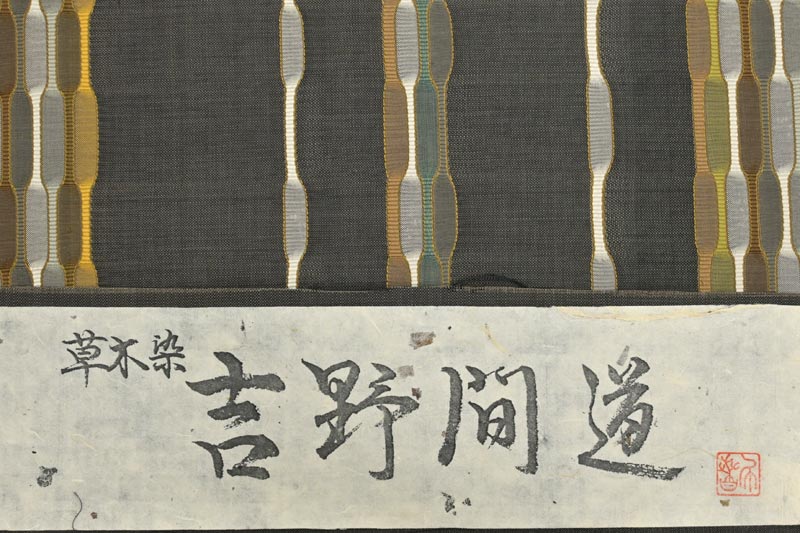 草木染 吉野間道